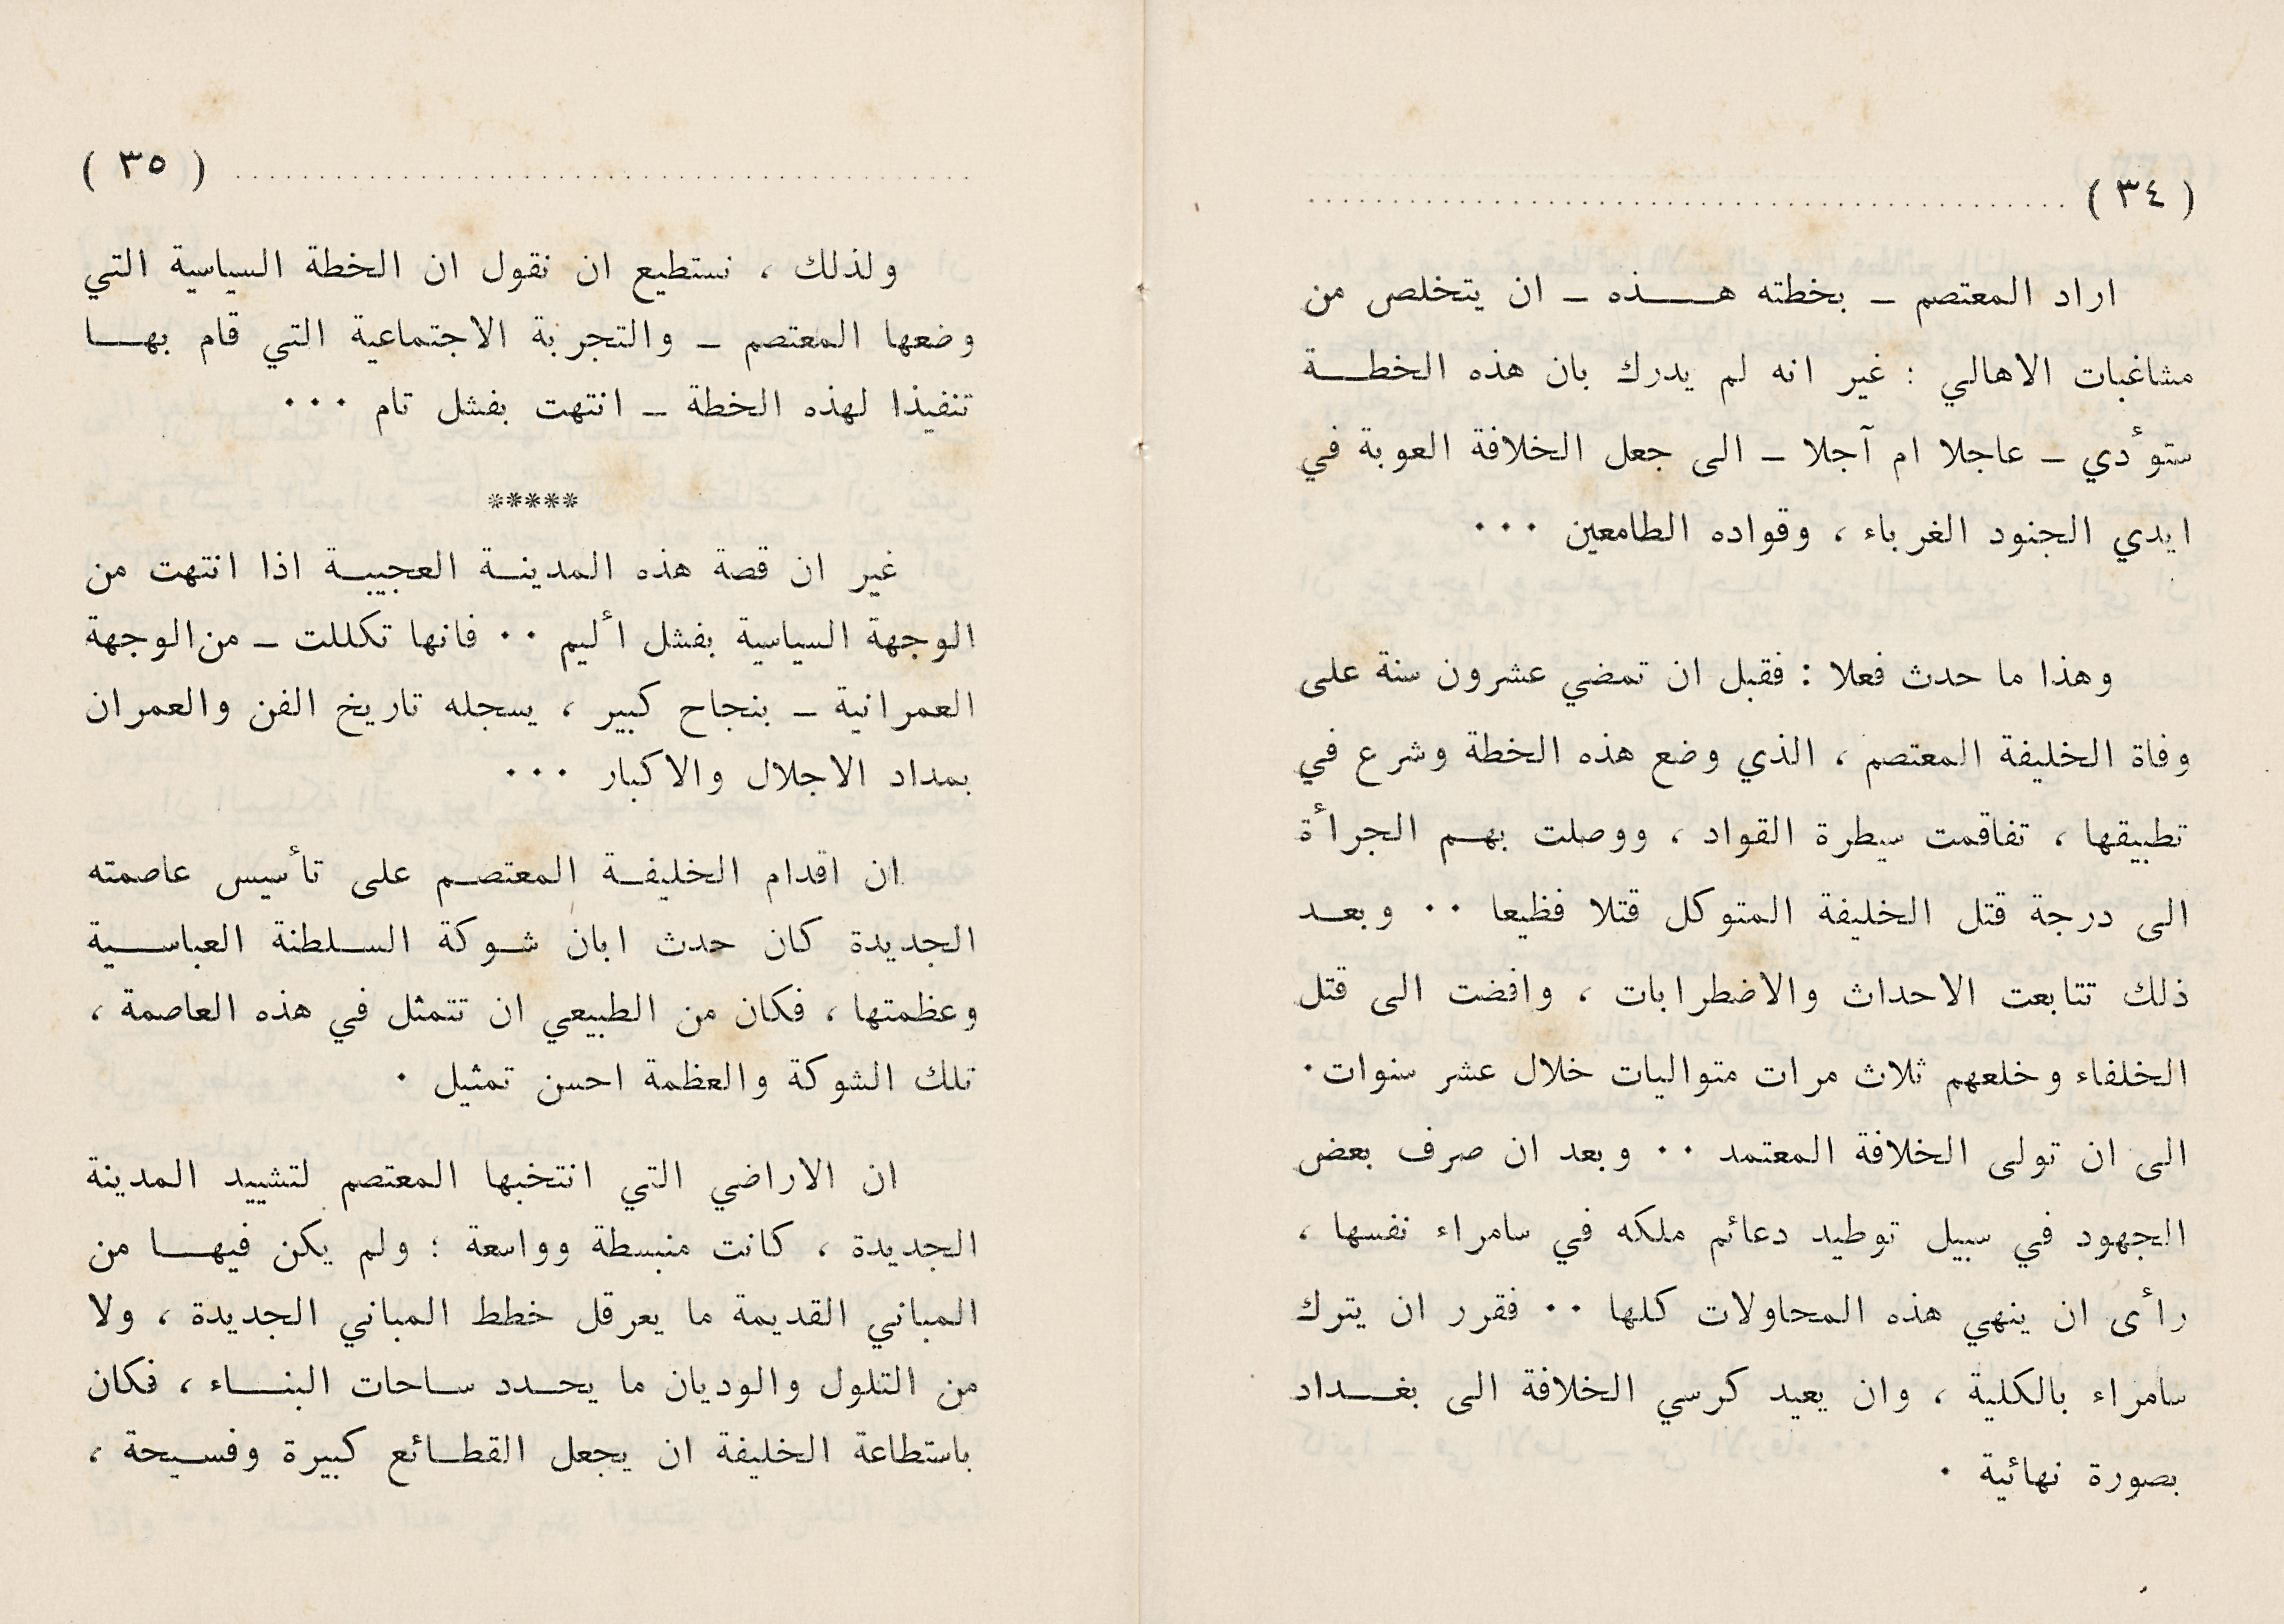 ( ٣٤ )
اراد المعتصم ــ بخطته هـــذه ــ ان يتخلص من
مشاغبات الاهالي : غير انه لم يدرك بان هذه الخطــة
ستوٴدي ــ عاجلا ام آجلا ــ الى جعل الخلافة العوبة في
ايدي الجنود الغرباء ، وقواده الطامعين ٠٠٠
وهذا ما حدث فعلا : فقبل ان تمضي عشرون سنة على
وفاة الخليفة المعتصم ، الذي وضع هذه الخطة وشرع في
تطبيقها ، تفاقمت سيطرة القواد ، ووصلت بهـم الجرأة
الى درجة قتل الخليفة المتوكل قتلا فظيعا ٠٠ وبعـد
ذلك تتابعت الاحداث والاضطرابات ، وافضت الى قتل
الخلفاء وخلعهم ثلاث مرات متواليات خلال عشر سنوات٠
الى ان تولى الخلافة المعتمد ٠٠ وبعد ان صرف بعض
الجهود في سبيل توطيد دعائم ملكه في سامراء نفسها ،
رأى ان ينهي هذه المحاولات كلها ٠٠ فقرر ان يترك
سامراء بالكلية ، وان يعيد كرسي الخلافة الى بغــداد
بصورة نهائية ٠
( ٣٥ )
ولذلك ، نستطيع ان نقول ان الخطة السياسية التي
وضعها المعتصم ــ والتجربة الاجتماعية التي قام بهــا
تنفيذا لهذه الخطة ــ انتهت بفشل تام ٠٠٠
*****
غير ان قصة هذه المدينـة العجيبـة اذا انتهت من
الوجهة السياسية بفشل أليم ٠٠ فانها تكللت ــ من الوجهة
العمرانية ــ بنجاح كبير ، يسجله تاريخ الفن والعمران
بمداد الاجلال والاكبار ٠٠٠
ان اقدام الخليفـة المعتصـم على تأسيس عاصمته
الجديدة كان حدث ابان شـوكة السـلطنة العباسـية
وعظمتها ، فكان من الطبيعي ان تتمثل في هذه العاصمة ،
تلك الشوكة والعظمة احسن تمثيل ٠
ان الاراضي التي انتخبها المعتصم لتشييد المدينة
الجديدة ، كانت منبسطة وواسعة : ولم يكن فيهــا من
المباني القديمة ما يعرقل خطط المباني الجديدة ، ولا
من التلول والوديان ما يحـدد سـاحات البنـاء ، فكان
باستطاعة الخليفة ان يجعل القطـائع كبيرة وفسـيحة ،